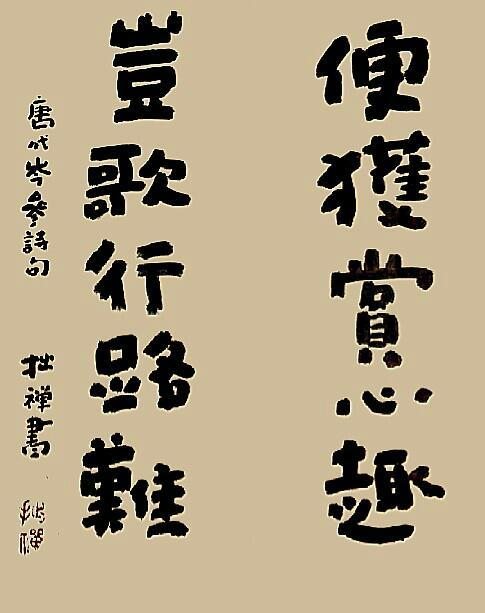 便獲賞心趣
豈歌行路難
唐代岑參詩句
拙禪書
拙禪